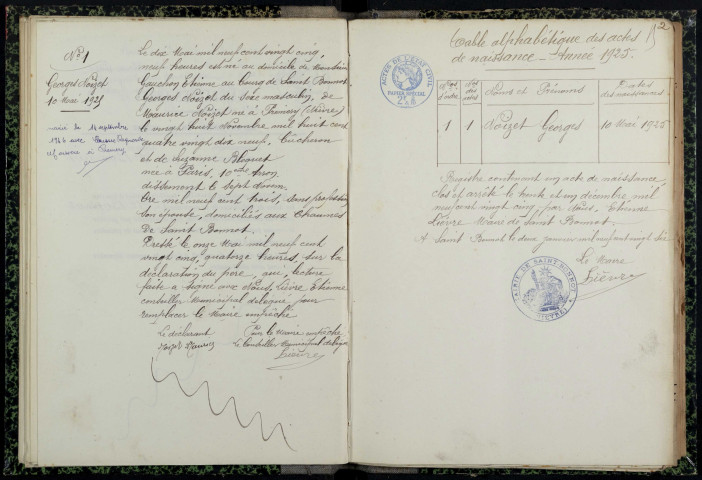 N° 1
Georges Noizet
10 Mai 1925
marié le 14 septembre
1946 avec
à Prémery
Le dix Mai mil neuf cent vingt cinq,
neuf heures est né au domicile de
Gauchon Etienne au bourg de Saint Bonnot
Georges Noizet du sexe masculin, de
Maurice Noizet né à Prémery (Nièvre)
le vingt huit Novembre mil huit cent
quatre vingt dix neuf, bûcheron
et de Suzanne Bloquet
née à Paris, 10ème arron
dissement le sept
bre mil neuf cent trois, sans profession
son épouse, domiciliés aux Chaumes
De Saint Bonnot.
Dressé le onze Mai mil neuf cent
vingt cinq, quatorze heures, sur la
déclaration du père, qui, lecture
faite a signé avec Nous, Lièvre Etienne
conseiller Municipal délégué pour
remplacer le Maire empêché
Le déclarant
Noizet Maurice
Pour le Maire empêché
Le Conseiller Municipal délégué
Lièvre
2
Table alphabétique des actes
de naissance - Année 1925.
ACTES DE L'ETAT CIVIL
PAPIER SPECIAL
Nos d'ordre
Nos des actes
Noms et Prénoms
Dates des naissances
1 1 Noizet Georges 10 Mai 1925
Registre contenant un acte de naissance
clos et arrêté le trente et un décembre mil
neuf cent vingt cinq par Nous, Etienne
Lièvre Maire de Saint Bonnot.
A Saint Bonnot le deux janvier mil neuf cent vingt six
Le Maire
Lièvre
MAIRIE DE SAINT-BONNOT
(NIEVRE)